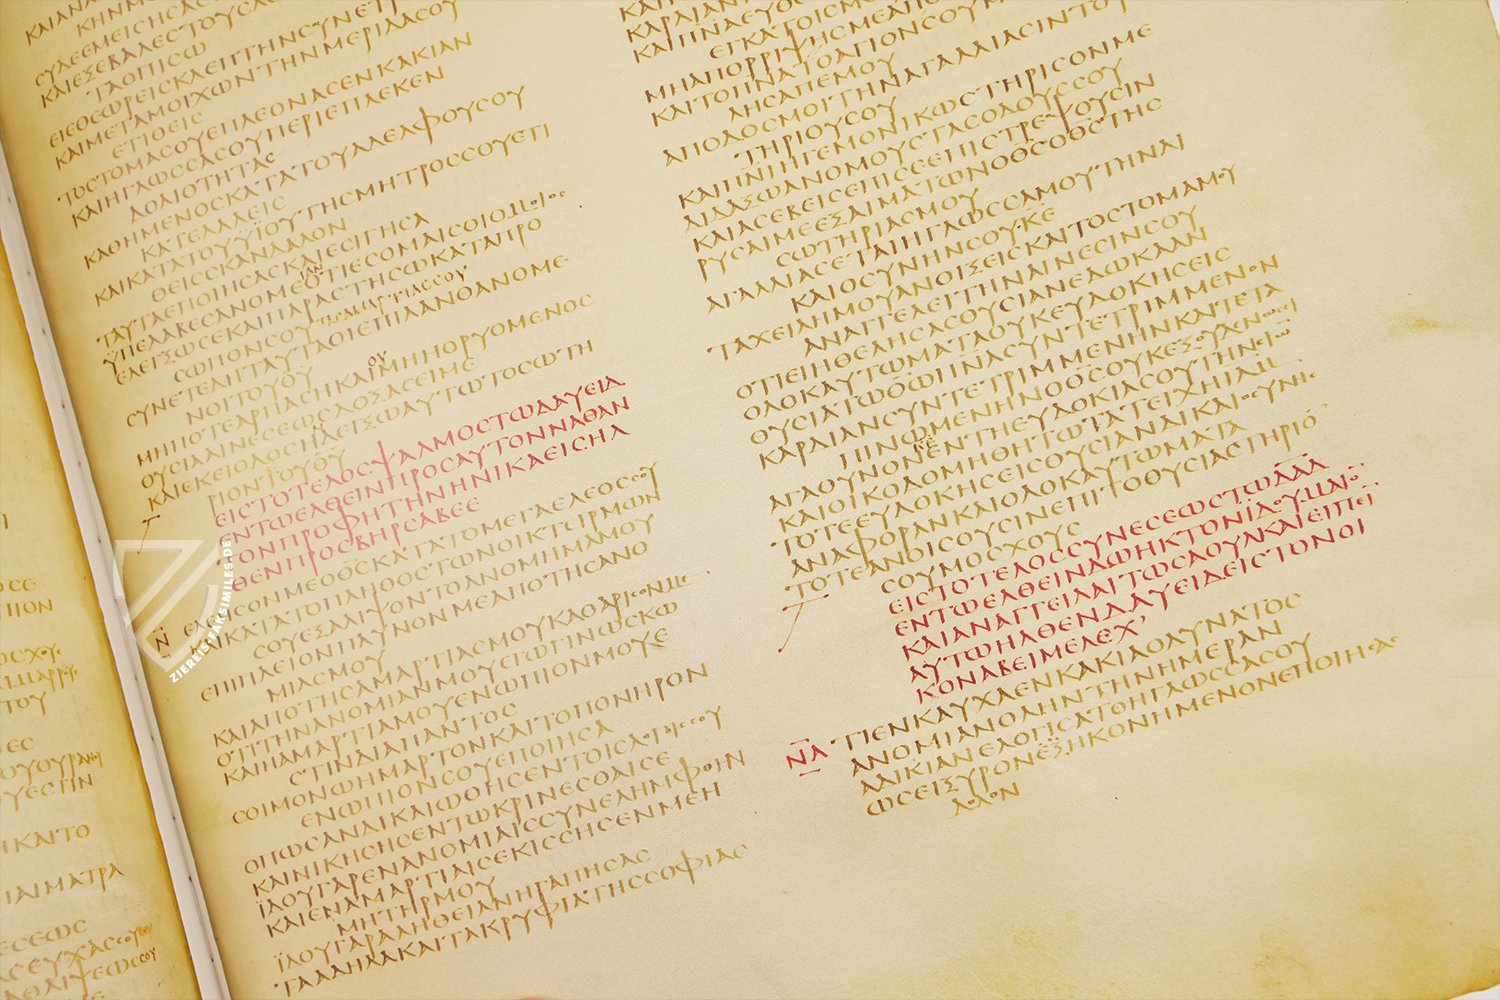 ΚΑΙΑΝΑ
ΚΗΝΜ
ϹΥΔΕΕΜΕΙϹΗϹΑϹ
ΚΑΙΕΞΕΒΑΛΕϹΤΟΥϹΛΟ
ΤΑΟΠΙϹΩ
ΕΙΕΘΕΩΡΕΙϹΚΛΕΠΤΗΝϹΥΝΕΤΡ
ΚΑΙΜΕΤΑΜΟΙΧΩΝΤΗΝΜΕΡΙΔΑϹΟΥ
ΕΤΙΘΕΙϹ
ΤΟϹΤΟΜΑϹΟΥΕΠΛΕΟΝΑϹΕΝΚΑΚΙΑΝ
ΚΑΙΗΓΛΩϹϹΑϹΟΥΠΕΡΙΕΠΛΕΚΕΝ
ΔΟΛΙΟΤΗΤΑϹ
ΚΑΘΗΜΕΝΟϹΚΑΤΑΤΟΥΑΔΕΛΦΟΥϹΟΥ
ΚΑΤΕΛΑΛΕΙϹ
ΚΑΙΚΑΤΑΤΟΥΫΪΟΥΤΗϹΜΗΤΡΟϹϹΟΥΕΤΙ
ΘΕΙϹϹΚΑΝΔΑΛΟΝ
ΤΑΥΤΑΕΠΟΙΗϹΑϹΚΑΙΕϹΙΓΗϹΑ
ΫΠΕΛΑΒΕϹΑΝΟΜΕΟΤΙΕϹΟΜΑΙϹΟΙΟΜΟΙΟϹ
ΕΛΕΓΞΩϹΕΚΑΙΠΑΡΑϹΤΗϹΩΚΑΤΑΠΡΟ
ϹΩΠΟΝϹΟΥ ΤΑϹΑΜΑΡΤΙΑϹϹΟΥ
ϹΥΝΕΤΕΔΗΤΑΥΤΑΟΙΕΠΙΛΑΝΘΑΝΟΜΕ
ΝΟΙΤΟΥΘΥ
ΜΗΠΟΤΕΑΡΠΑϹΗΚΑΙΟΥΜΗΗΟΡΥΟΜΕΝΟϹ
ΘΥϹΙΑΑΙΝΕϹΕΩϹΔΟΞΑϹΕΙΜΕ
ΚΑΙΕΚΕΙΟΔΟϹΗΔΕΙΞΩΑΥΤΩΤΟϹΩΤΗ
ΡΙΟΝΤΟΥΘΥ
ΕΙϹΤΟΤΕΛΟϹΨΑΛΜΟϹΤΩΔΑΥΕΙΔ
ΕΝΤΩΕΛΘΕΙΝΠΡΟϹΑΥΤΟΝΝΑΘΑΝ
ΤΟΝΠΡΟΦΗΤΗΝΗΝΙΚΑΕΙϹΗΛ
ΘΕΝΠΡΟϹΒΗΡϹΑΒΕΕ
Ν ΕΛΕΗϹΟΝΜΕΟΘϹΚΑΤΑΤΟΜΕΓΑΕΛΕΟϹϹΟΥ
ΚΑΙΚΑΤΑΤΟΠΛΗΘΟϹΤΩΝΟΙΚΤΕΙΡΜΩΝ
ϹΟΥΕΞΑΛΙΨΟΝΤΟΑΝΟΜΗΜΑΜΟΥ
ΕΠΙΠΛΕΙΟΝΠΛΥΝΟΝΜΕΑΠΟΤΗϹΑΝΟ
ΜΙΑϹΜΟΥ
ΚΑΙΑΠΟΤΗϹΑΜΑΡΤΙΑϹΜΟΥΚΑΘΑΡΙϹΟΝΜΕ
ΟΤΙΤΗΝΑΝΟΜΙΑΝΜΟΥΕΓΩΓΙΝΩϹΚΩ
ΚΑΙΗΑΜΑΡΤΙΑΜΟΥΕΝΩΠΙΟΝΜΟΥΕ
ϹΤΙΝΔΙΑΠΑΝΤΟϹ
ϹΟΙΜΟΝΩΗΜΑΡΤΟΝΚΑΙΤΟΠΟΝΗΡΟΝ
ΕΝΩΠΙΟΝϹΟΥΕΠΟΙΗϹΑ
ΟΠΩϹΑΝΔΙΚΑΙΩΘΗϹΕΝΤΟΙϹΛΟΓΟΙϹϹΟΥ
ΚΑΙΝΙΚΗϹΗϹΕΝΤΩΚΡΙΝΕϹΘΑΙϹΕ
ΪΔΟΥΓΑΡΕΝΑΝΟΜΙΑΙϹϹΥΝΕΛΗΜΦΘΗΝ
ΚΑΙΕΝΑΜΑΡΤΙΑΙϹΕΚΙϹϹΗϹΕΝΜΕΗ
ΜΗΤΗΡΜΟΥ
ΪΔΟΥΓΑΡΑΛΗΘΕΙΑΝΗΓΑΠΗϹΑϹ
ΤΑΑΔΗΛΑΚΑΙΤΑΚΡΥΦΙΑΤΗϹϹΟΦΙΑϹ
ΚΑΡΔΙΑΝ
ΚΑΙΠΝΑΕΥΘ
ΕΓΚΑΤΟΙϹΜ
ΜΗΑΠΟΡΡΙΨΗϹΜΕΑΠΟ
ΚΑΙΤΟΠΝΑΤΟΑΓΙΟΝϹΟΥΜ
ΛΗϹΑΠΕΜΟΥ
ΑΠΟΔΟϹΜΟΙΤΗΝΑΓΑΛΛΙΑϹΙΝΤΟΥ
ΤΗΡΙΟΥϹΟΥ
ΚΑΙΠΝΙΗΓΕΜΟΝΙΚΩϹΤΗΡΙϹΟΝΜΕ
ΔΙΔΑΞΩΑΝΟΜΟΥϹΤΑϹΟΔΟΥϹϹΟΥ
ΚΑΙΑϹΕΒΕΙϹΕΠΙϹΕΕΠΙϹΤΡΕΨΟΥϹΙΝ
ΡΥϹΑΙΜΕΕΞΑΙΜΑΤΩΝΟΘϹΟΘϹΤΗϹ
ϹΩΤΗΡΙΑϹΜΟΥ
ΑΓΑΛΛΙΑϹΕΤΑΙΗΓΛΩϹϹΑΜΟΥΤΗΝΔΙ
ΚΑΙΟϹΥΝΗΝϹΟΥΚΕ
ΤΑΧΕΙΛΗΜΟΥΑΝΟΙΞΕΙϹΚΑΙΤΟϹΤΟΜΑΜΟΥ
ΑΝΑΓΓΕΛΕΙΤΗΝΑΙΝΕϹΙΝϹΟΥ
ΟΤΙΕΙΗΘΕΛΗϹΑϹΘΥϹΙΑΝΕΔΩΚΑΑΝ
ΟΛΟΚΑΥΤΩΜΑΤΑΟΥΚΕΥΔΟΚΗϹΕΙϹ
ΘΥϹΙΑΤΩΘΩΠΝΑϹΥΝΤΕΤΡΙΜΜΕΝΟΝ
ΚΑΡΔΙΑΝϹΥΝΤΕΤΡΙΜΜΕΝΗΝΚΑΙΤΕΤΑ
ΠΙΝΩΜΕΝΗΝΟΘϹΟΥΚΕΞΟΥΔΕΝΩϹΕΙ
ΑΓΑΘΥΝΟΝΚΕΕΝΤΗΕΥΔΟΚΙΑϹΟΥΤΗΝϹΙΩ
ΚΑΙΟΙΚΟΔΟΜΗΘΗΤΩΤΑΤΕΙΧΗΙΛΗΜ
ΤΟΤΕΕΥΔΟΚΗϹΕΙϹΘΥϹΙΑΝΔΙΚΑΙΟϹΥΝΗϹ
ΑΝΑΦΟΡΑΝΚΑΙΟΛΟΚΑΥΤΩΜΑΤΑ
ΤΟΤΕΑΝΟΙϹΟΥϹΙΝΕΠΙΤΟΘΥϹΙΑϹΤΗΡΙΟ
ϹΟΥΜΟϹΧΟΥϹ
ΕΙϹΤΟΤΕΛΟϹϹΥΝΕϹΕΩϹΤΩΔΑΔ
ΕΝΤΩΕΛΘΕΙΝΔΩΗΚΤΟΝΙΔΟΥΜΑΙΟ
ΚΑΙΑΝΑΓΓΕΙΛΑΙΤΩϹΑΟΥΛΚΑΙΕΙΠΕΙ
ΑΥΤΩΗΛΘΕΝΔΑΥΕΙΔΕΙϹΤΟΝΟΙ
ΚΟΝΑΒΕΙΜΕΛΕΧ’
ΝΑ ΤΙΕΝΚΑΥΧΑΕΝΚΑΚΙΑΟΔΥΝΑΤΟϹ
ΑΝΟΜΙΑΝΟΛΗΝΤΗΝΗΜΕΡΑΝ
ΑΔΙΚΙΑΝΕΛΟΓΙϹΑΤΟΗΓΛΩϹϹΑϹΟΥ
ΩϹΕΙΞΥΡΟΝΕΞΗΚΟΝΗΜΕΝΟΝΕΠΟΙΗϹΑϹ
ΔΟΛΟΝ
ZIEREIS-FAKSIMILES.DE